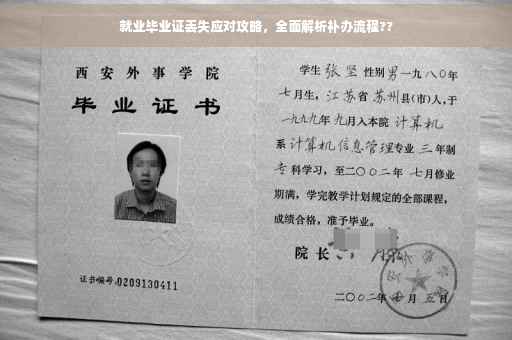 就业毕业证丢失应对攻略，全面解析补办流程??
西安外事学院
毕业证书
证书编号:0209130411
学生 张坚 性别 男 一九八〇年
七月生，江苏省 苏州 县(市)人，于
一九九九年 九月入本院 计算机
系 计算机信息管理 专业 三 年制
专 科学习，至二〇〇二年 七月修业
期满，学完教学计划规定的全部课程，
成绩合格，准予毕业。
院长
二〇〇二年 月 五日